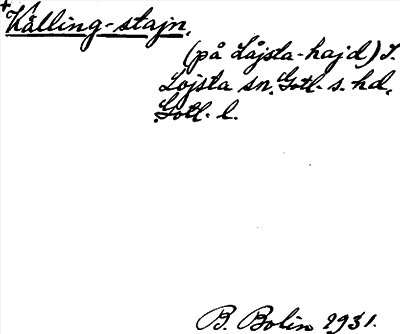 + Källing-stajn,
(på Låjsta-hajd) I.
Lojsta sn. Gotl. s. hd,
Gotl. l.
B. Bolin 1931.